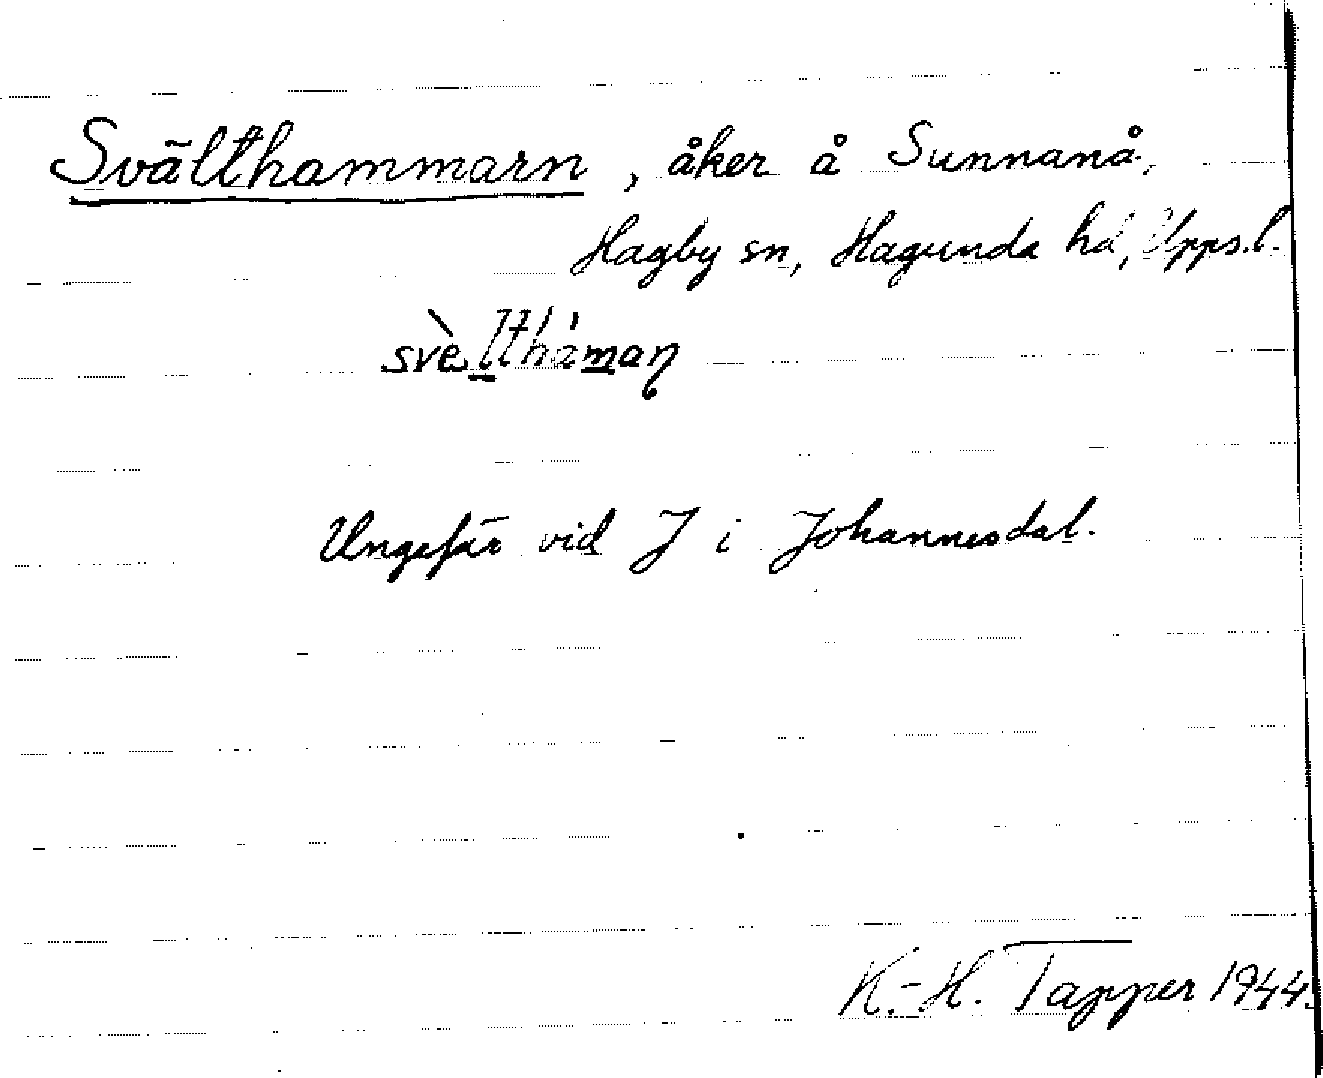 Svälthammarn, åker å Sunnanå,
Hagby sn, Hagunda hd, Upps.l.
svèlthámaɳ
Ungefär vid J i Johannesdal.
K.-H. Tapper 1944.